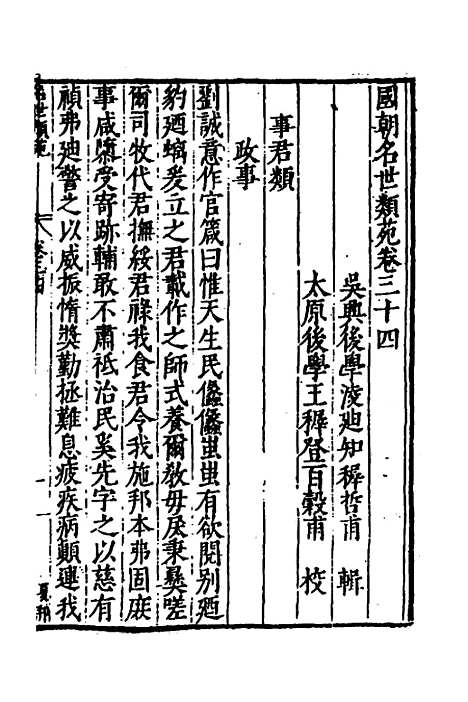 國朝名世類苑卷三十四
吳興後學淩迪知穉哲甫 輯
太原後學王穉登百穀甫 校
事君類
政事
劉誠意作官箴曰惟天生民儦儦蚩蚩有欲罔別廼
豹廼螭爰立之君載作之師式養爾教毋戾秉彝嗟
爾司牧代君撫綏君祿我食君令我施邦本弗固庶
事咸隳受寄跡輔敢不肅祗治民奚先字之以慈有
頑弗迪警之以威振惰獎勤拯難息疲疾病顛連我
名世類苑 卷三十四 一